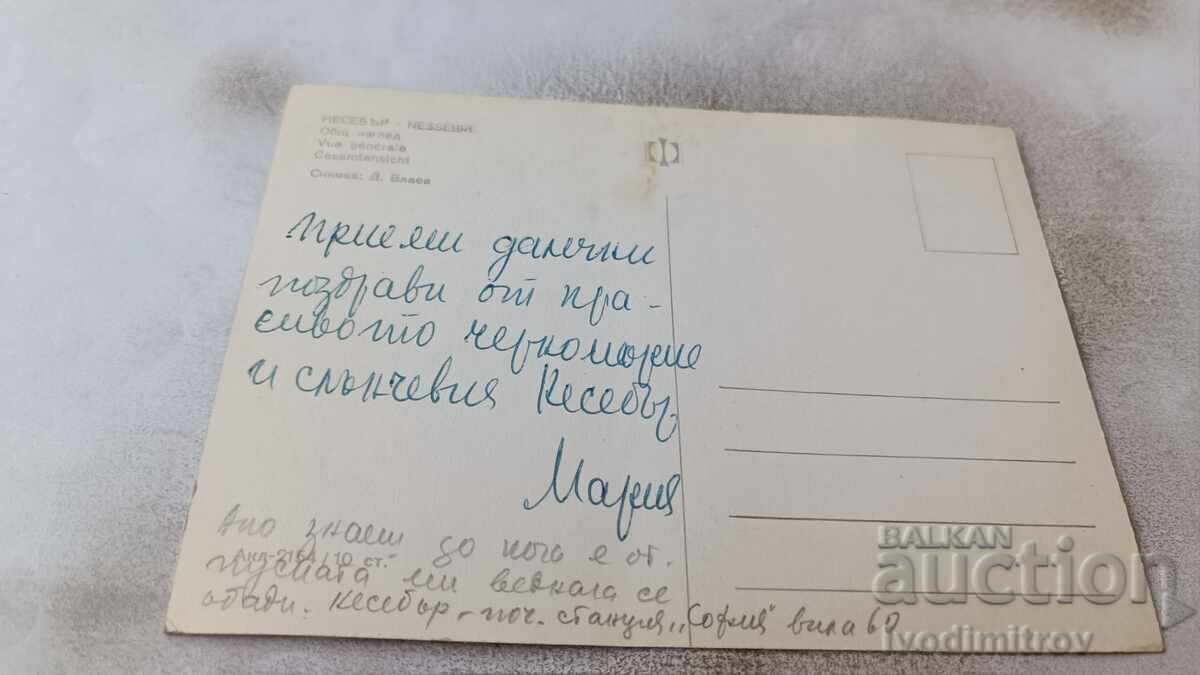 НЕСЕБЪР - NESSEBRE
Общ изглед
Vue générale
Gesamtansicht
Снимка: Д. Влаев
Приеми далечни
поздрави от кра-
сивото черноморие
и слънчевия Несебър.
Мария
Ако знаеш до кога е от-
Акл-2164/10 ст.
пуската ми веднага се
обади. Несебър - поч. станция „София" вила 60
BALKAN
auction
ivodimitrov